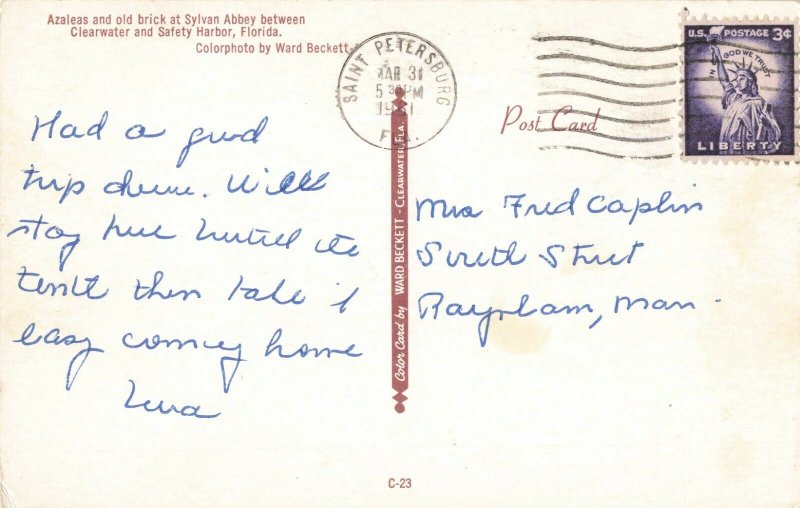 Azaleas and old brick at Sylvan Abbey between
Clearwater and Safety Harbor, Florida.
Colorphoto by Ward Beckett.
SAINT PETERSBURG
MAR 31
5 30 PM
FLA.
U.S. POSTAGE 3¢
IN GOD WE TRUST
LIBERTY
Post Card
Had a good
trip down. Will
stay here until the
tenth then take it
easy coming home
Mrs Fred Caplin
South Street
Color Card by WARD BECKETT - CLEARWATER, FLA.
C-23